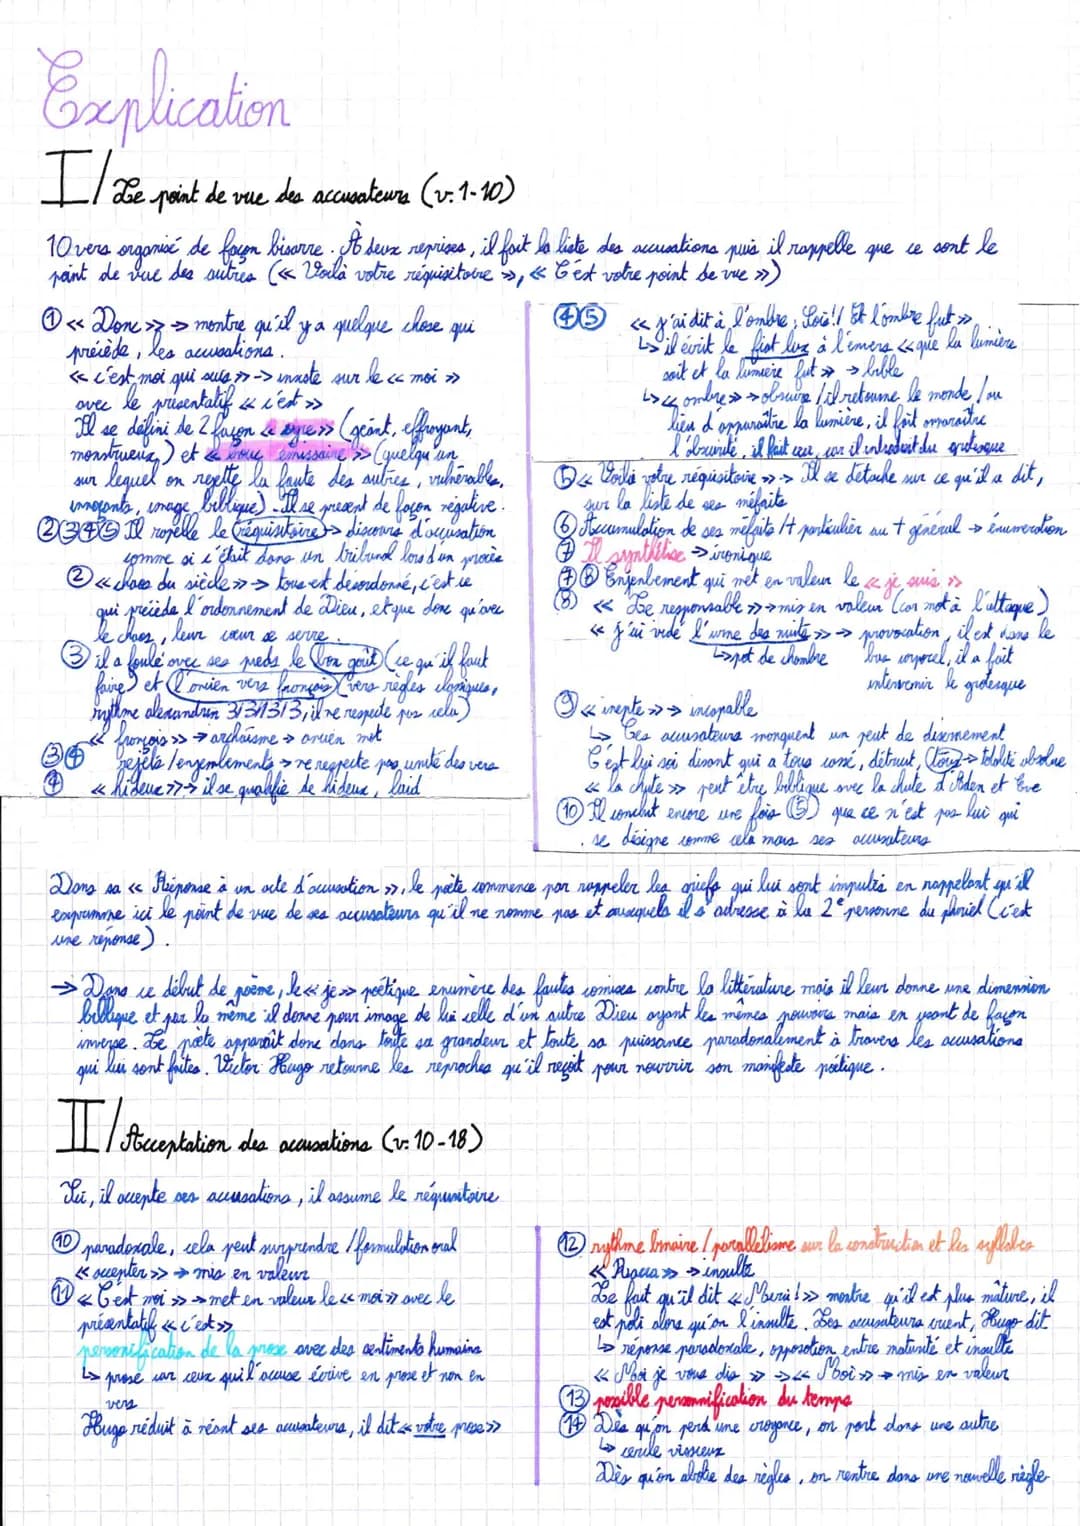 Explication
I/ Le point de vue des accusateurs (v. 1-10)
10 vers organisé de façon bisarre. À deux reprises, il fait la liste des accusations puis il rappelle que ce sont le
point de vue des autres (« Voilà votre réquisitoire », « C'est votre point de vue »)
① « Donc » → montre qu'il y a quelque chose qui
précède, les accusations.
« c'est moi qui suis » → insiste sur le « moi »
avec le présentatif « c'est »
Il se défini de 2 façon « ogre » (géant, effrayant,
monstrueux,) et « bouc émissaire » (quelqu'un
sur lequel on rejette la faute des autres, vulnérables,
innocents, image biblique). Il se présent de façon négative.
②③④⑤ Il rapelle le réquisitoire → discours d'accusation
comme si c'était dans un tribunal lors d'un procès
② « chaos du siècle » → tous est desordonné, c'est ce
qui précède l'ordonnement de Dieu, et que donc qu'avec
le chaos, leur cœur se serre.
③ il a foulé avec ses pieds le bon goût (ce qu'il faut
faire) et l'ancien vers françois (vers règles classiques,
rythme alexandrin 3/3/3/3, il ne respecte pas cela)
« françois » → archaïsme → ancien mot
③④ rejets/enjambements → ne respecte pas unité des vers
④ « hideux » → il se qualifie de hideux, laid
④⑤ « j'ai dit à l'ombre : Sois ! / Et l'ombre fut »
↳ il écrit le fiat lux à l'envers « que la lumière
soit et la lumière fut » → bible
↳ « ombre » → obscure / il retourne le monde / au
lieu d'apparaître la lumière, il fait apparaître
l'obscurité, il fait ceci, car il introduit du grotesque
⑤ « Voilà votre réquisitoire » → Il se détache sur ce qu'il a dit,
sur la liste de ses méfaits
⑥ Accumulation de ses méfaits / + particulier au + général → énumération
⑦ Il synthétise → ironique
⑦⑧ Enjenbement qui met en valeur le « je suis »
⑧ « Le responsable » → mis en valeur (car mot à l'attaque)
« J'ai vidé l'urne des nuits » → provocation, il est dans le
↳ pot de chambre bas corporel, il a fait
intervenir le grotesque
⑨ « inepte » → incapable
↳ Ces accusateurs manquent un peut de discernement
C'est lui soi disant qui a tous cassé, détruit, (tous) → totalité absolue
« la chute » peut être biblique avec la chute d'Aden et Eve
⑩ Il conclut encore une fois (⑤) que ce n'est pas lui qui
se désigne comme cela mais ses accusateurs
Dans sa « Réponse à un acte d'accusation », le poète commence par rappeler les griefs qui lui sont imputés en rappelant qu'il
exprimme ici le point de vue de ses accusateurs qu'il ne nomme pas et auxquels il s'adresse à la 2e personne du pluriel (c'est
une réponse).
→ Dans ce début de poème, le « je » poétique énumère des fautes comises contre la littérature mais il leur donne une dimension
biblique et par là même il donne pour image de lui celle d'un autre Dieu ayant les mêmes pouvoirs mais en usant de façon
inverse. Le poète apparaît donc dans toute sa grandeur et toute sa puissance paradoxalement à travers les accusations
qui lui sont faites. Victor Hugo retourne les reproches qu'il reçoit pour nourrir son manifeste poétique.
II/ Acceptation des accusations (v. 10-18)
Ici, il accepte ses accusations, il assume le réquisitoire
⑩ paradoxale, cela peut surprendre / formulation oral
« accepter » → mis en valeur
⑪ « C'est moi » → met en valeur le « moi » avec le
présentatif « c'est »
personification de la prose avec des sentiments humains
↳ prose car ceux qui l'accuse écrive en prose et non en
vers
Hugo réduit à néant ses accusateurs, il dit « votre prose »
⑫ rythme binaire / parallélisme sur la construction et les syllabes
« Raca » → insulte
Le fait qu'il dit « Merci ! » montre qu'il est plus mâture, il
est poli alors qu'on l'insulte. Les accusateurs crient, Hugo dit
↳ réponse paradoxale, opposotion entre maturité et insulte
« Moi je vous dis » → « Moi » → mis en valeur
⑬ possible personnification du temps
⑭ Dès qu'on perd une croyance, on part dans une autre
↳ cercle vissieux
Dès qu'on abolie des règles, on rentre dans une nouvelle règle